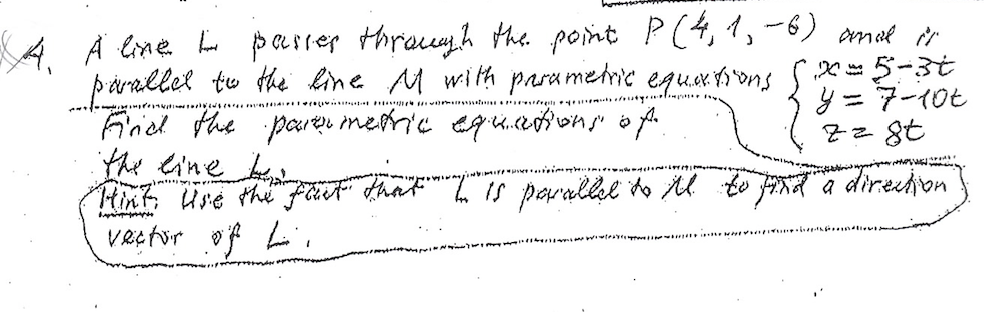 4. A line L passes through the point P(4, 1, -6) and is
parallel to the line M with parametric equations { x = 5-3t
y = 7-10t
z = 8t
Find the parametric equations of
the line L.
Hint: Use the fact that L is parallel to M to find a direction
vector of L.